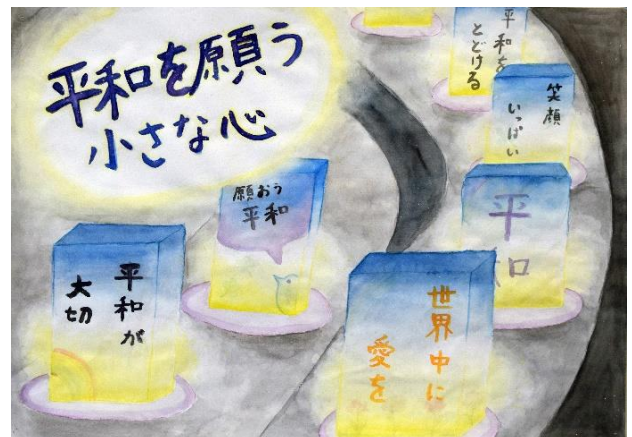 平和を願う
小さな心
平和を
とどける
笑顔
いっぱい
願おう
平和
平和
平和が
大切
世界中に
愛を